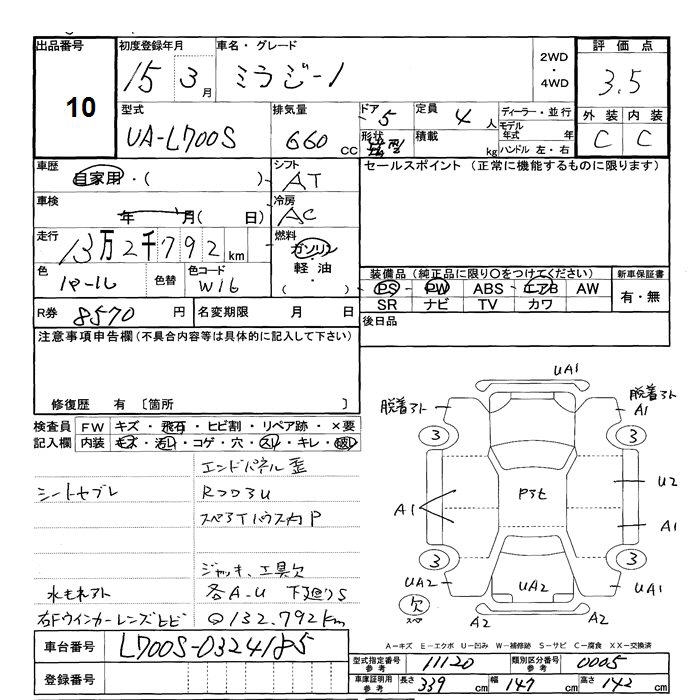 出品番号 初度登録年月 車名・グレード 2WD・4WD 評価点
10 15 3月 ミラジーノ 3.5
型式 排気量 ドア 定員 ディーラー・並行 外装 内装
UA-L700S 660 CC 5 4人 モデル年式 年 C C
形状 積載 kg ハンドル 左・右
車歴 自家用・( ) シフト AT セールスポイント (正常に機能するものに限ります)
車検 年 月( 日) 冷房 AC
走行 13万2千792km 燃料 ガソリン 軽油・( )
色 パール 色替 色コード W16
装備品 (純正品に限り○をつけてください) 新車保証書
PS PW ABS エアB AW 有・無
SR ナビ TV カワ
R券 8570円 名変期限 月 日 後日品
注意事項申告欄(不具合内容等は具体的に記入して下さい)
修復歴 有 〔箇所 〕
検査員 FW キズ・飛石・ヒビ割・リペア跡・×要
記入欄 内装 キズ・汚レ・コゲ・穴・スレ・キレ・破レ
エンドパネル歪
シートセブレ
P
ジャッキ、工具欠
水もれアト 各A-U 下廻りS
右Fウインカーレンズヒビ 132.792km
UA1
脱着アト 脱着アト A1
3 3
A1 Pチヒ U2
A1
3 3
UA2 UA2 UA1
欠 スペ A2 A2
A-キズ E-エクボ U-凹み W-補修跡 S-サビ C-腐食 XX-交換済
車台番号 L700S-0324185
登録番号
型式指定番号 参考 11120 類別区分番号 参考 0005
車庫証明用 参考 長さ 339cm 幅 147cm 高さ 142cm